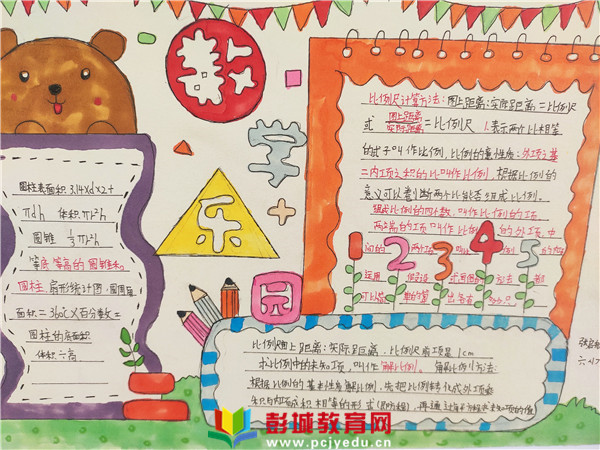 数
学
乐
园
圆柱表面积 3.14×d×2+
πdh 体积 πr²h
圆锥 ⅓πr²h
等底等高的圆锥
圆柱 扇形统计图·扇圆
面积=360°×百分数=
圆柱的底面积
体积÷高
比例尺计算方法:图上距离:实际距离=比例尺
或 图上距离/实际距离=比例尺 表示两个比相等
的式子叫作比例,比例的基性质:外项之基
二内项之积的比叫作比例,根据比例的
意义可以判断两个比能否组成比例。
组成比例的四个数,叫作比例的项
两端的项叫作比例的外项,中
1 2 3 4 5
间的 两个项
运用 方法
比例尺图上距离:实际距离,比例尺前项是1cm
求比例中的未知项,叫作解比例。解比例方法:
根据比例的基本性质解比例,先把比例转化成外项乘
积与内项乘积相等的形式,再通过解方程求未知项的值
彭城教育网
www.pcjyedu.cn